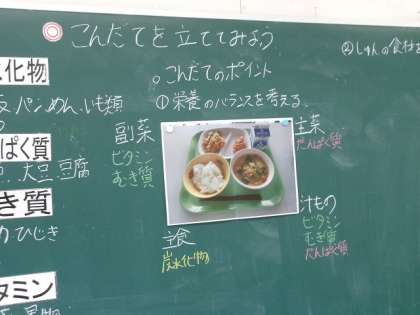 こんだてを立ててみよう
②しゅんの食材を
水化物
。こんだてのポイント
パン、めん、いも類
①栄養のバランスを考える。
ぱく質
副菜
ビタミン
むき質
主菜
たんぱく質
大豆、豆腐
き質
ひじき
主食
炭水化物
汁もの
ビタミン
むき質
たんぱく質
タミン